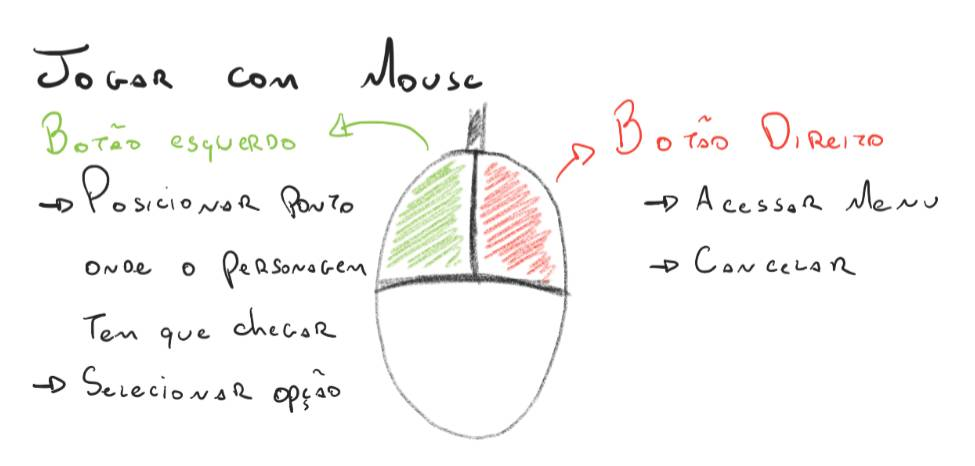 Jogar com Mouse
Botão esquerdo
→ Posicionar Ponto
onde o personagem
Tem que chegar
→ Selecionar opção
Botão Direito
→ Acessar Menu
→ Cancelar